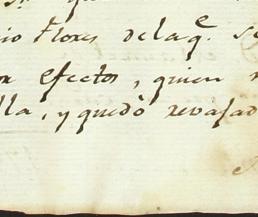 io Flores de la q.e se
efectos, quien
lla, y quedó revajad